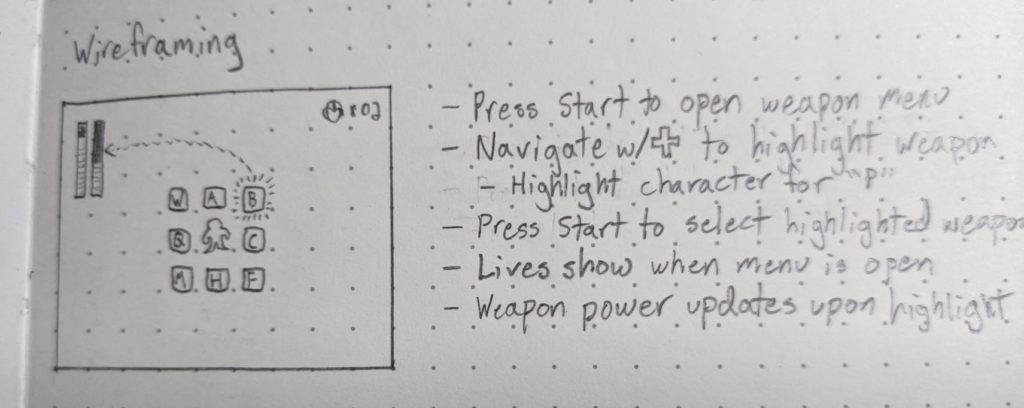 Wireframing
x02
W A B
Q C
M H F
- Press Start to open weapon menu
- Navigate w/ to highlight weapon
- Highlight character for "P"
- Press Start to select highlighted weapon
- Lives show when menu is open
- Weapon power updates upon highlight